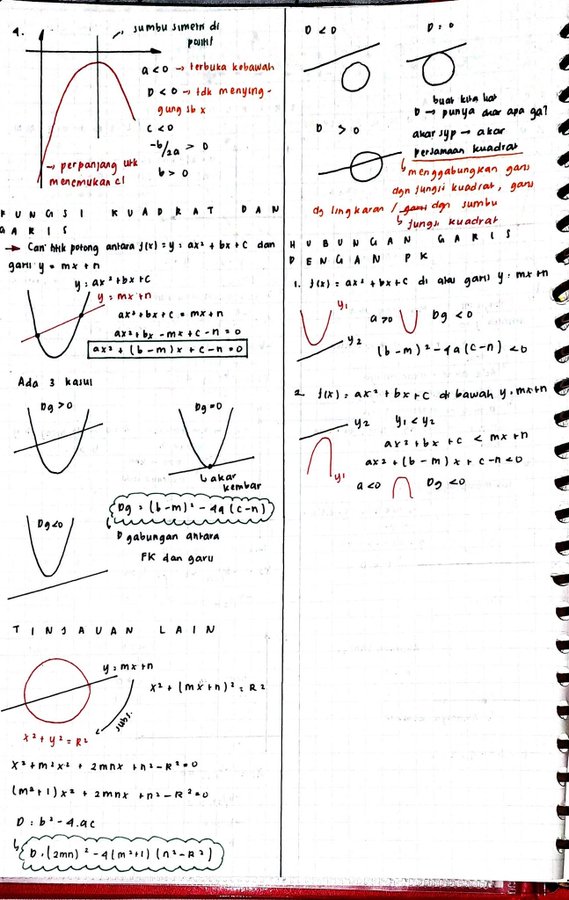 4.
sumbu simetri di
positif
a < 0 → terbuka kebawah
D < 0 → tdk menying-
gung sb x
c < 0
-b/2a > 0
b > 0
→ perpanjang utk
menemukan c!
FUNGSI KUADRAT DAN
GARIS
→ Cari titik potong antara f(x) = y = ax² + bx + c dan
garis y = mx + n
y = ax² + bx + c
y = mx + n
ax² + bx + c = mx + n
ax² + bx - mx + c - n = 0
ax² + (b - m)x + c - n = 0
Ada 3 kasus
Dg > 0
Dg = 0
akar
kembar
Dg = (b - m)² - 4a (c - n)
D gabungan antara
FK dan garis
Dg < 0
TINJAUAN LAIN
y = mx + n
x² + (mx + n)² = R²
subs.
x² + y² = R²
x² + m²x² + 2mnx + n² - R² = 0
(m² + 1) x² + 2mnx + n² - R² = 0
D = b² - 4.ac
D = (2mn)² - 4 (m² + 1) (n² - R²)
D < 0
D = 0
D > 0
buat kita liat
D → punya akar apa ga?
akar syp → akar
persamaan kuadrat
menggabungkan garis
dgn fungsi kuadrat, garis
dg lingkaran / dgn sumbu
fungsi kuadrat
HUBUNGAN GARIS
DENGAN PK
1. f(x) = ax² + bx + c di atas garis y = mx + n
y₁
y₂
a > 0
Dg < 0
(b - m)² - 4a (c - n) < 0
2. f(x) = ax² + bx + c di bawah y = mx + n
y₂
y₁
y₁ < y₂
ax² + bx + c < mx + n
ax² + (b - m) x + c - n < 0
a < 0
Dg < 0